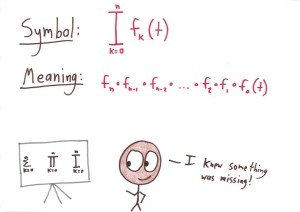 Symbol: I_{k=0}^{n} f_k(t)
Meaning: f_n ∘ f_{n-1} ∘ f_{n-2} ∘ ... ∘ f_2 ∘ f_1 ∘ f_0(t)
Σ_{k=0}^{n} ∏_{k=0}^{n} I_{k=0}^{n}
I knew something
was missing!